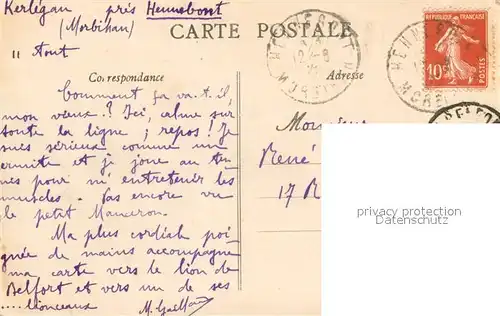 Kerlégan près Hennebont
(Morbihan)
11 Aout
CARTE POSTALE
Correspondance
Adresse
RÉPUBLIQUE FRANÇAISE
10c
POSTES
HENNEBONT
MORBIHAN
HENNEB
MORBI
Comment ça va-t-il,
mon vieux ? Ici, calme sur
toute la ligne ; repos ! Je
suis sérieux comme un
ermite et je joue au ten-
nis pour m'entretenir les
muscles - Pas encore vu
le petit
Ma plus cordiale poi-
gnée de mains accompagne
ma carte vers le lion de
Belfort et vers un de ses
....lionceaux
Monsieur
René
17 R
privacy protection
Datenschutz